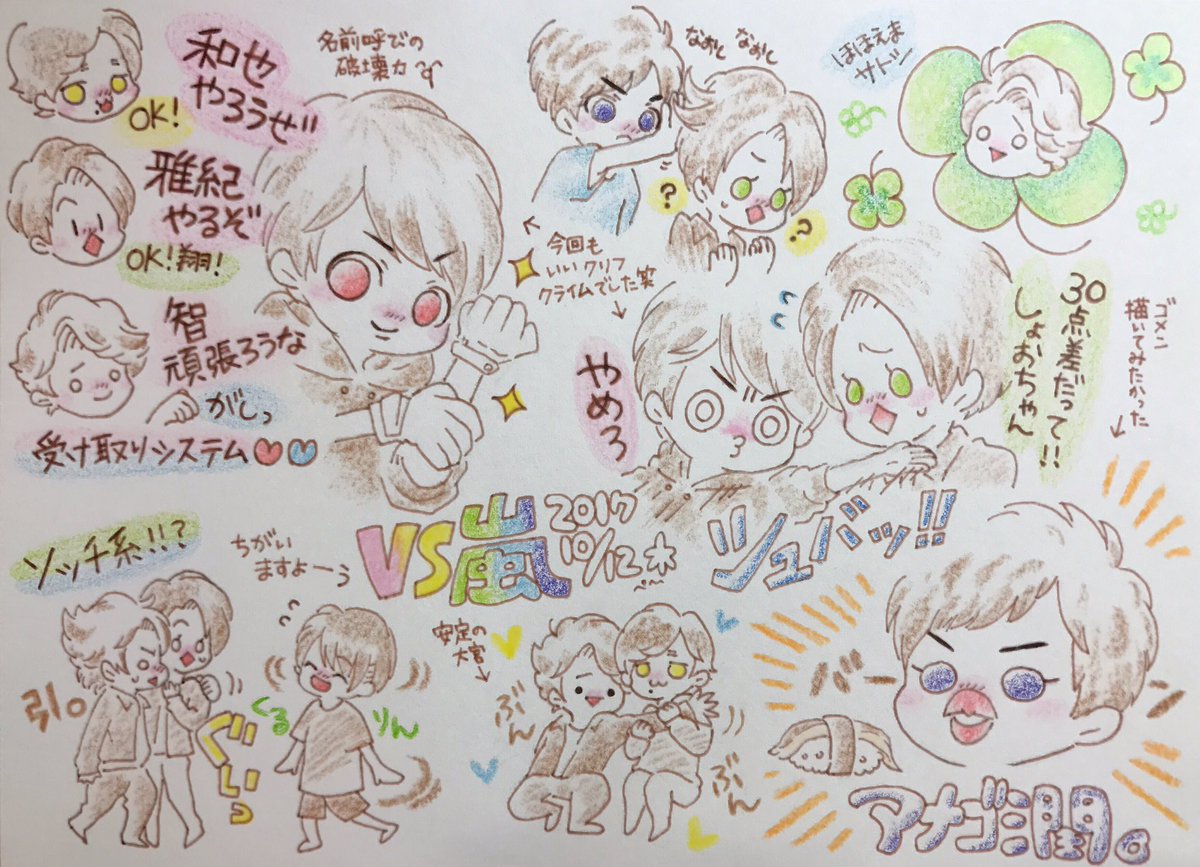 和也
やろうぜ
OK!
雅紀
やるぞ
OK!翔!
智
頑張ろうな
がしっ
受け取りシステム
名前呼びの
破壊力
なおと なおと
?
?
今回も
いいクリフ
クライムでした笑
ほほえま
サトシ
やめろ
30点差だって!!
しょおちゃん
ゴメン
描いてみたかった
VS嵐
2017
10/12木
シュバッ!!
ソッチ系!!?
ちがい
ますよーぅ
引。
ぐいっ
くる
りん
安定の
大宮
ぶん
ぶん
バーン
アナゴ潤。